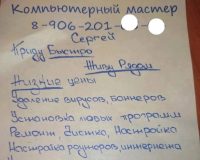 Компьютерный мастер
8-906-201-
Сергей
Приеду Быстро
Живу Рядом
Низкие цены
Удаление вирусов, баннеров
Установка любых программ
Ремонт, Чистка, Настройка
Настройка роутеров, интернета